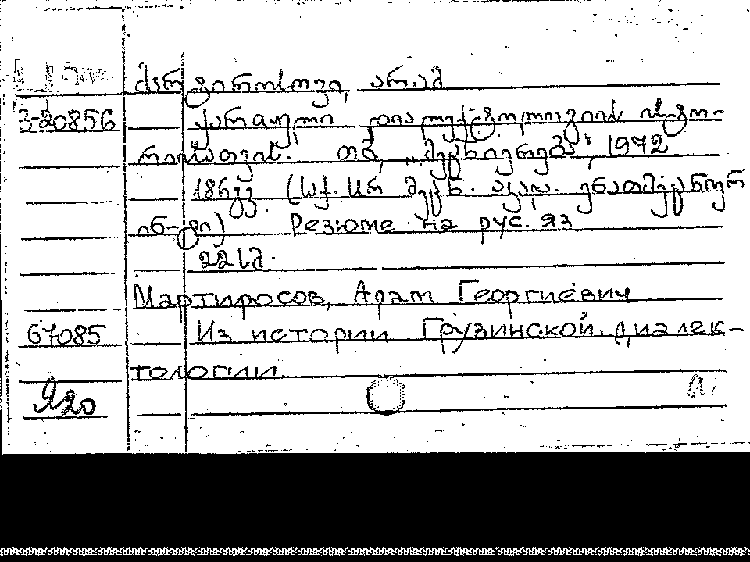 მარტიროსოვი, არამ
3-20856 ქართული დიალექტოლოგიის ისტო-
რიისათვის. თბ, „მეცნიერება“, 1972
189გვ. (საქ. სსრ მეცნ. აკად. ენათმეცნიერ.
ინ-ტი) Резюме на рус. яз
22 სმ.
Мартиросов, Арам Георгиевич
67085 Из истории Грузинской диалек-
тологии.